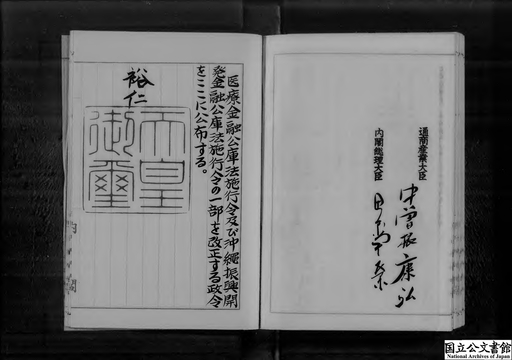 医療金融公庫法施行令及び沖縄振興開
発金融公庫法施行令の一部を改正する政令
をここに公布する。
裕仁
天皇
御璽
通商産業大臣
中曽根康弘
内閣総理大臣
田中角榮
国立公文書館
National Archives of Japan